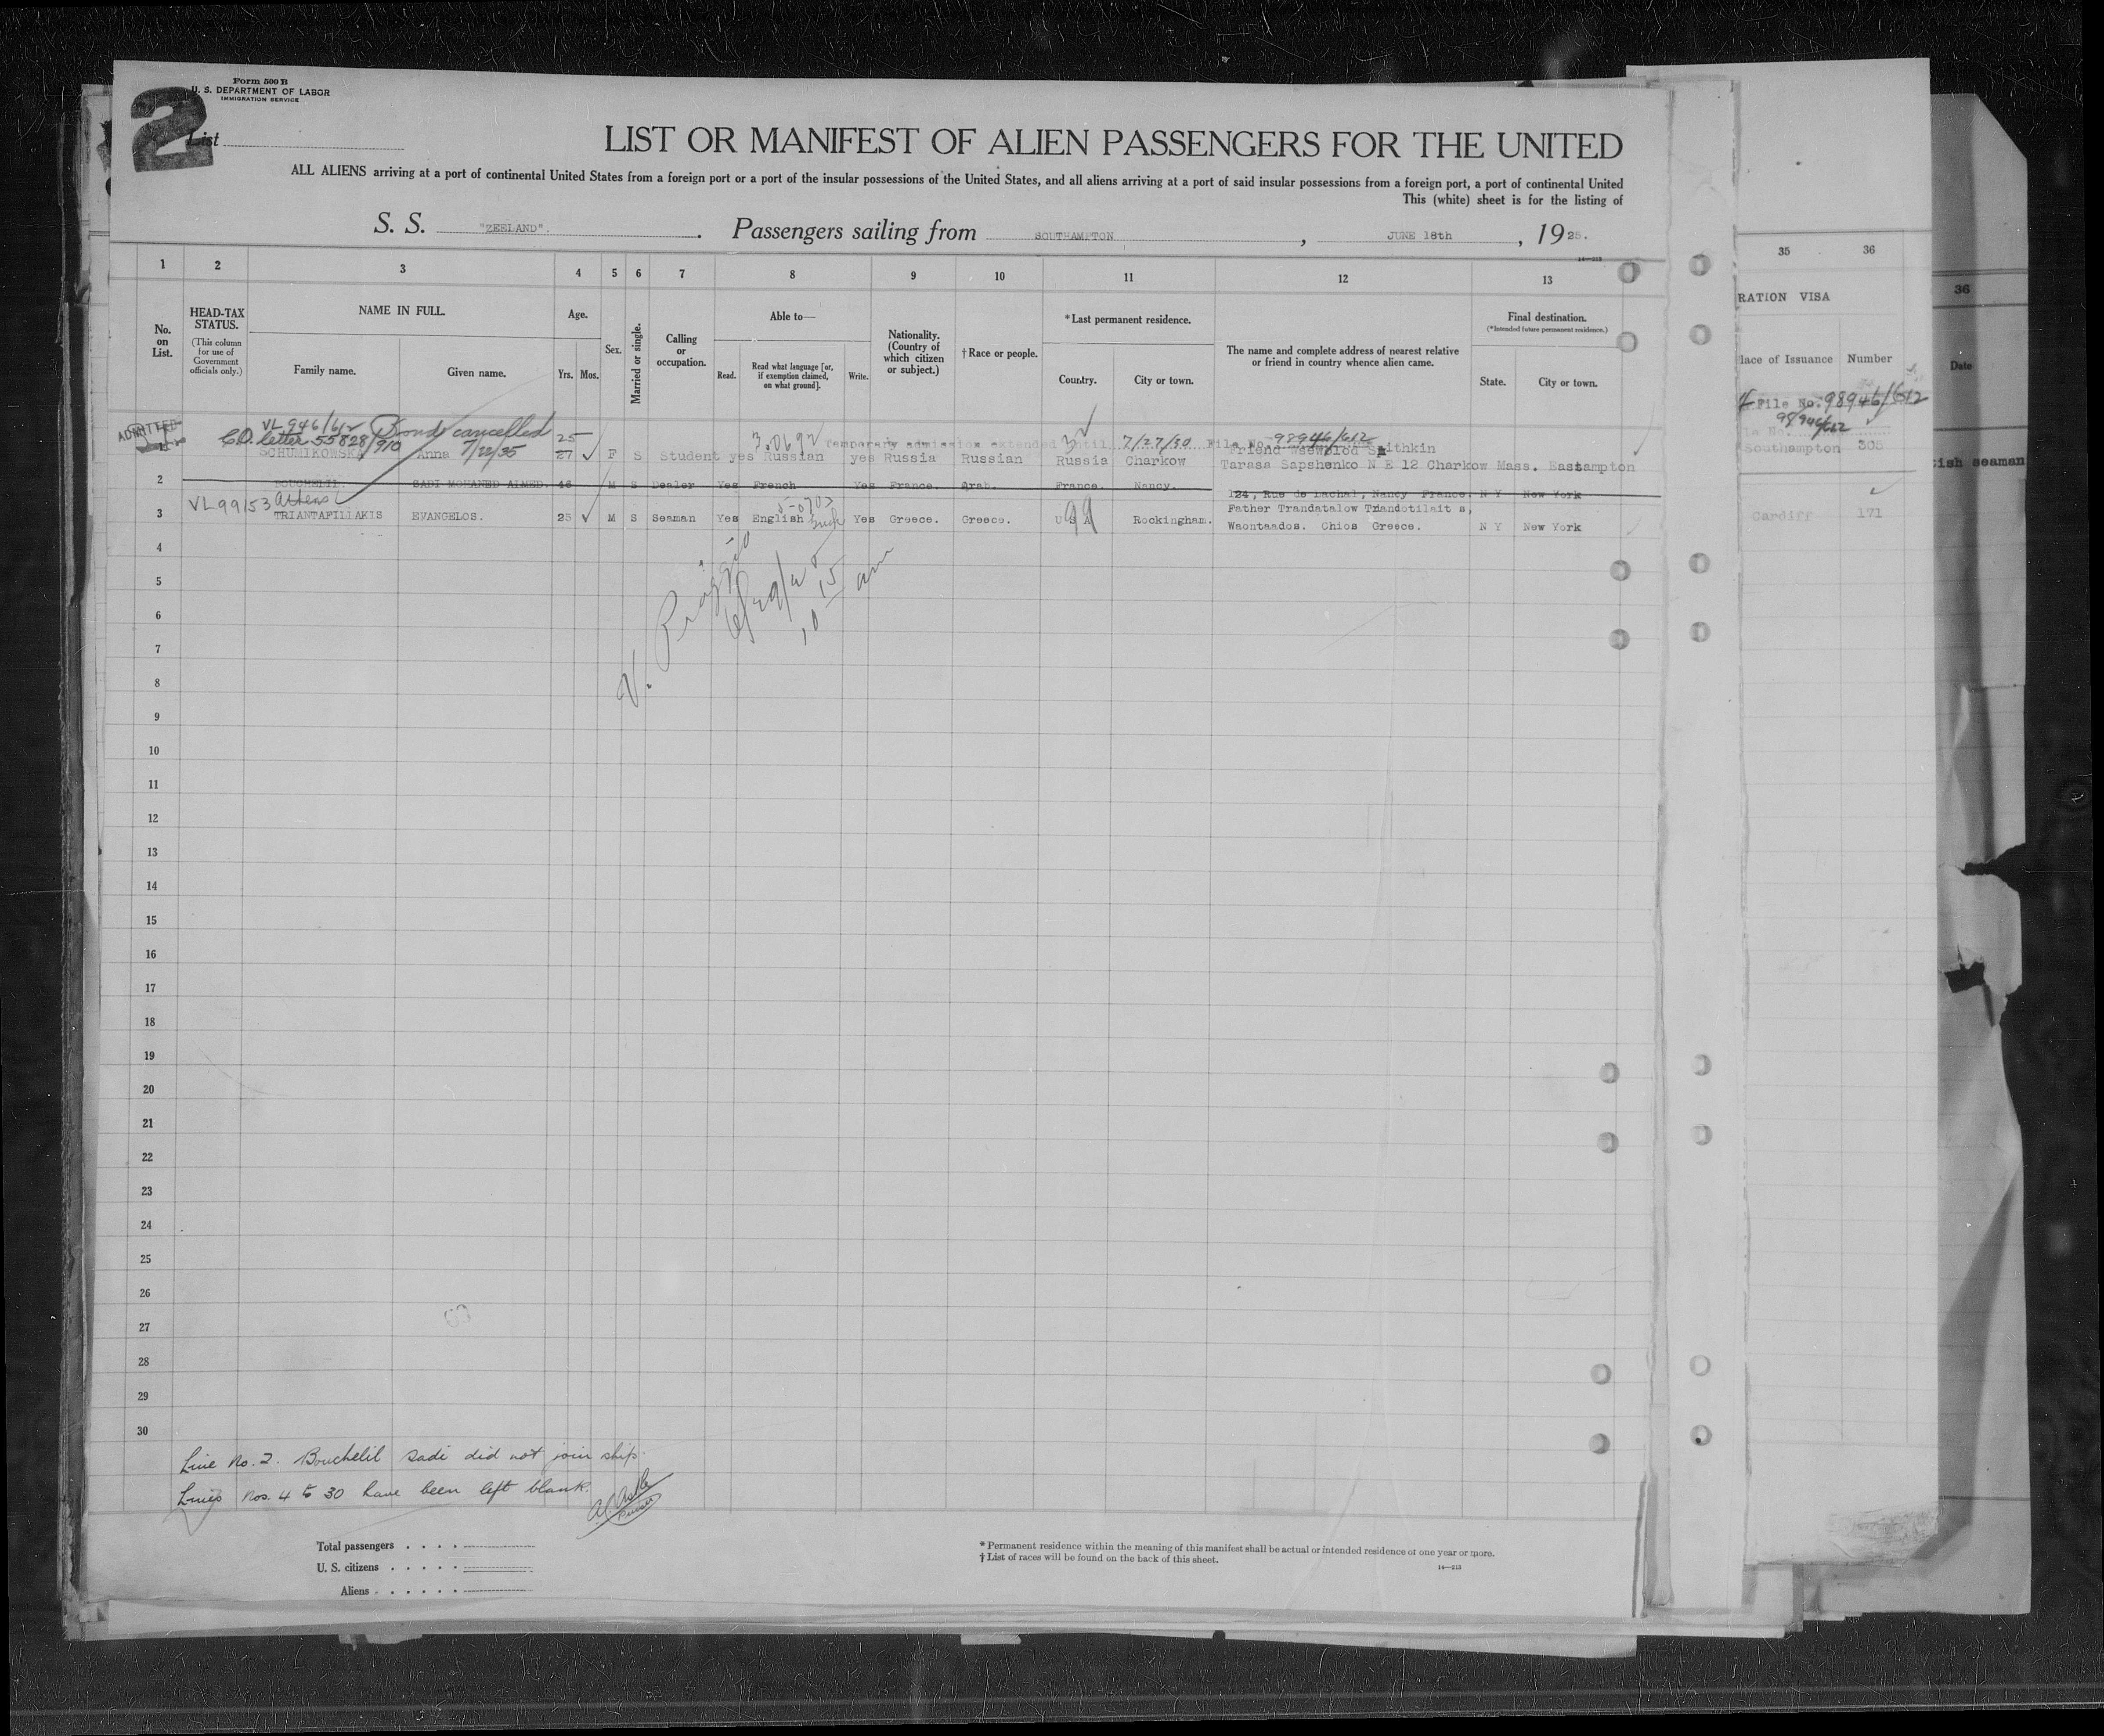 Form 500 B
U. S. DEPARTMENT OF LABOR
IMMIGRATION SERVICE
2
List
LIST OR MANIFEST OF ALIEN PASSENGERS FOR THE UNITED
ALL ALIENS arriving at a port of continental United States from a foreign port or a port of the insular possessions of the United States, and all aliens arriving at a port of said insular possessions from a foreign port, a port of continental United
This (white) sheet is for the listing of
S. S. "ZEELAND". Passengers sailing from SOUTHAMPTON, JUNE 18th, 1925.
1 2 3 4 5 6 7 8 9 10 11 12 13
No. on List.
HEAD-TAX STATUS.
(This column for use of Government officials only.)
NAME IN FULL.
Family name.
Given name.
Age.
Yrs. Mos.
Sex.
Married or single.
Calling or occupation.
Able to—
Read.
Read what language [or, if exemption claimed, on what ground].
Write.
Nationality. (Country of which citizen or subject.)
† Race or people.
*Last permanent residence.
Country.
City or town.
The name and complete address of nearest relative or friend in country whence alien came.
Final destination.
(*Intended future permanent residence.)
State.
City or town.
ADMITTED
VL 946/612 Bond cancelled
C.O. letter 55828/910 7/22/35
25
3.0692 Temporary admission extended until 7/27/30 File No. 98946/612
Friend
SCHUMIKOWSKA Anna 27 F S Student yes Russian yes Russia Russian Russia Charkow Tarasa Sapshenko N E 12 Charkow Mass. Eastampton
2 BOUCHELIL. SADI MOHAMED AIMED. 46 M S Dealer Yes French Yes France. Arab. France. Nancy. 124, Rue de Lachal, Nancy France. N Y New York
VL 99153 Athens
5-0703
Father Trandatalow Triandotilait s,
3 TRIANTAFILLAKIS EVANGELOS. 25 M S Seaman Yes English Yes Greece. Greece. U S A 99 Rockingham. Waontaados. Chios Greece. N Y New York
4
5
6
7
8
9
10
11
12
13
14
15
16
17
18
19
20
21
22
23
24
25
26
27
28
29
30
10 15 am
Line No. 2. Bouchelil Sadi did not join ship.
Lines Nos. 4 to 30 have been left blank.
Purser
Total passengers
U. S. citizens
Aliens
* Permanent residence within the meaning of this manifest shall be actual or intended residence of one year or more.
† List of races will be found on the back of this sheet.
14—213
35 36
RATION VISA
lace of Issuance Number
File No. 98946/612
98946/612
Southampton 305
Cardiff 171
36
Date
ish seaman